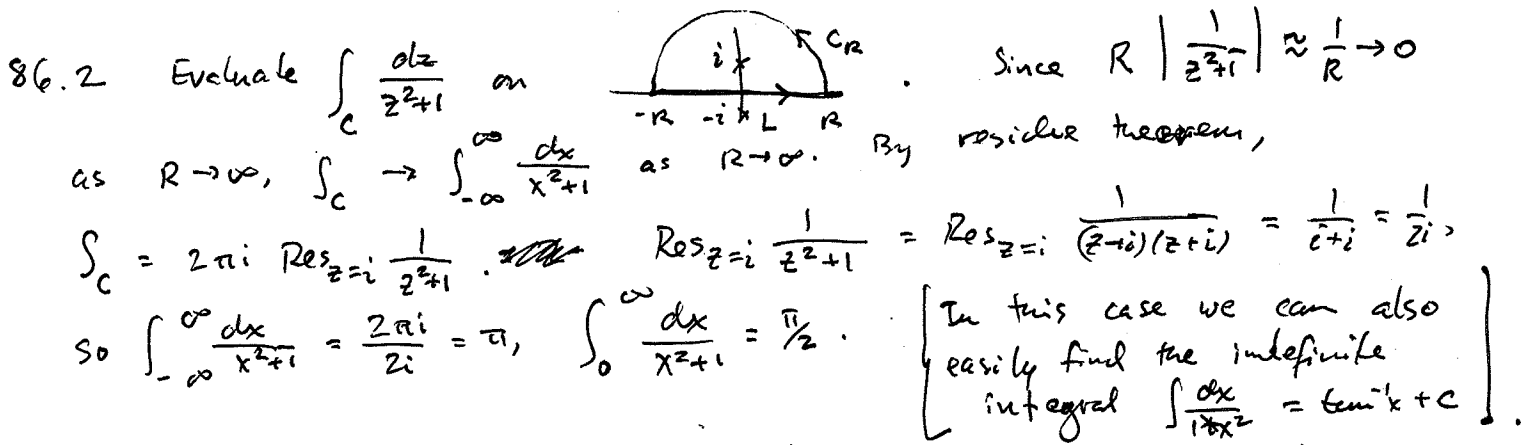 86.2 Evaluate ∫_C dz/(z²+1) on [i -R -i L R C_R] . Since R |1/(z²+1)| ≈ 1/R → 0
as R→∞, ∫_C → ∫_{-∞}^{∞} dx/(x²+1) as R→∞. By residue theorem,
∫_C = 2πi Res_{z=i} 1/(z²+1) . Res_{z=i} 1/(z²+1) = Res_{z=i} 1/((z-i)(z+i)) = 1/(i+i) = 1/2i ,
so ∫_{-∞}^{∞} dx/(x²+1) = 2πi/2i = π, ∫_0^∞ dx/(x²+1) = π/2 .
[In this case we can also
easily find the indefinite
integral ∫ dx/(1+x²) = tan⁻¹x + C ] .